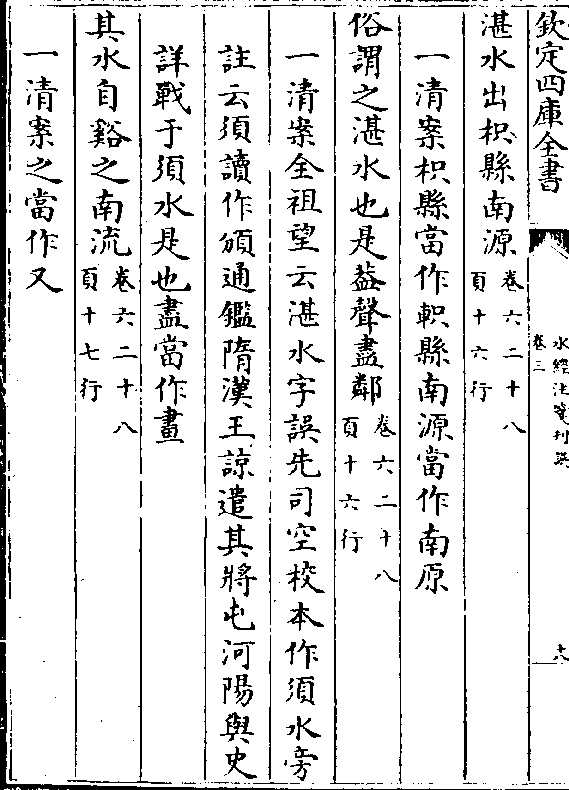 欽定四庫全書
水經注箋刊誤
卷三
十八
湛水出枳縣南源卷六二十八
頁十六行
一清案枳縣當作軹縣南源當作南原
俗謂之湛水也是葢聲盡鄰卷六二十八
頁十六行
一清案全祖望云湛水字誤先司空校本作須水旁
註云須讀作頒通鑑隋漢王諒遣其將屯河陽與史
詳戰于須水是也盡當作畫
其水自谿之南流卷六二十八
頁十七行
一清案之當作又